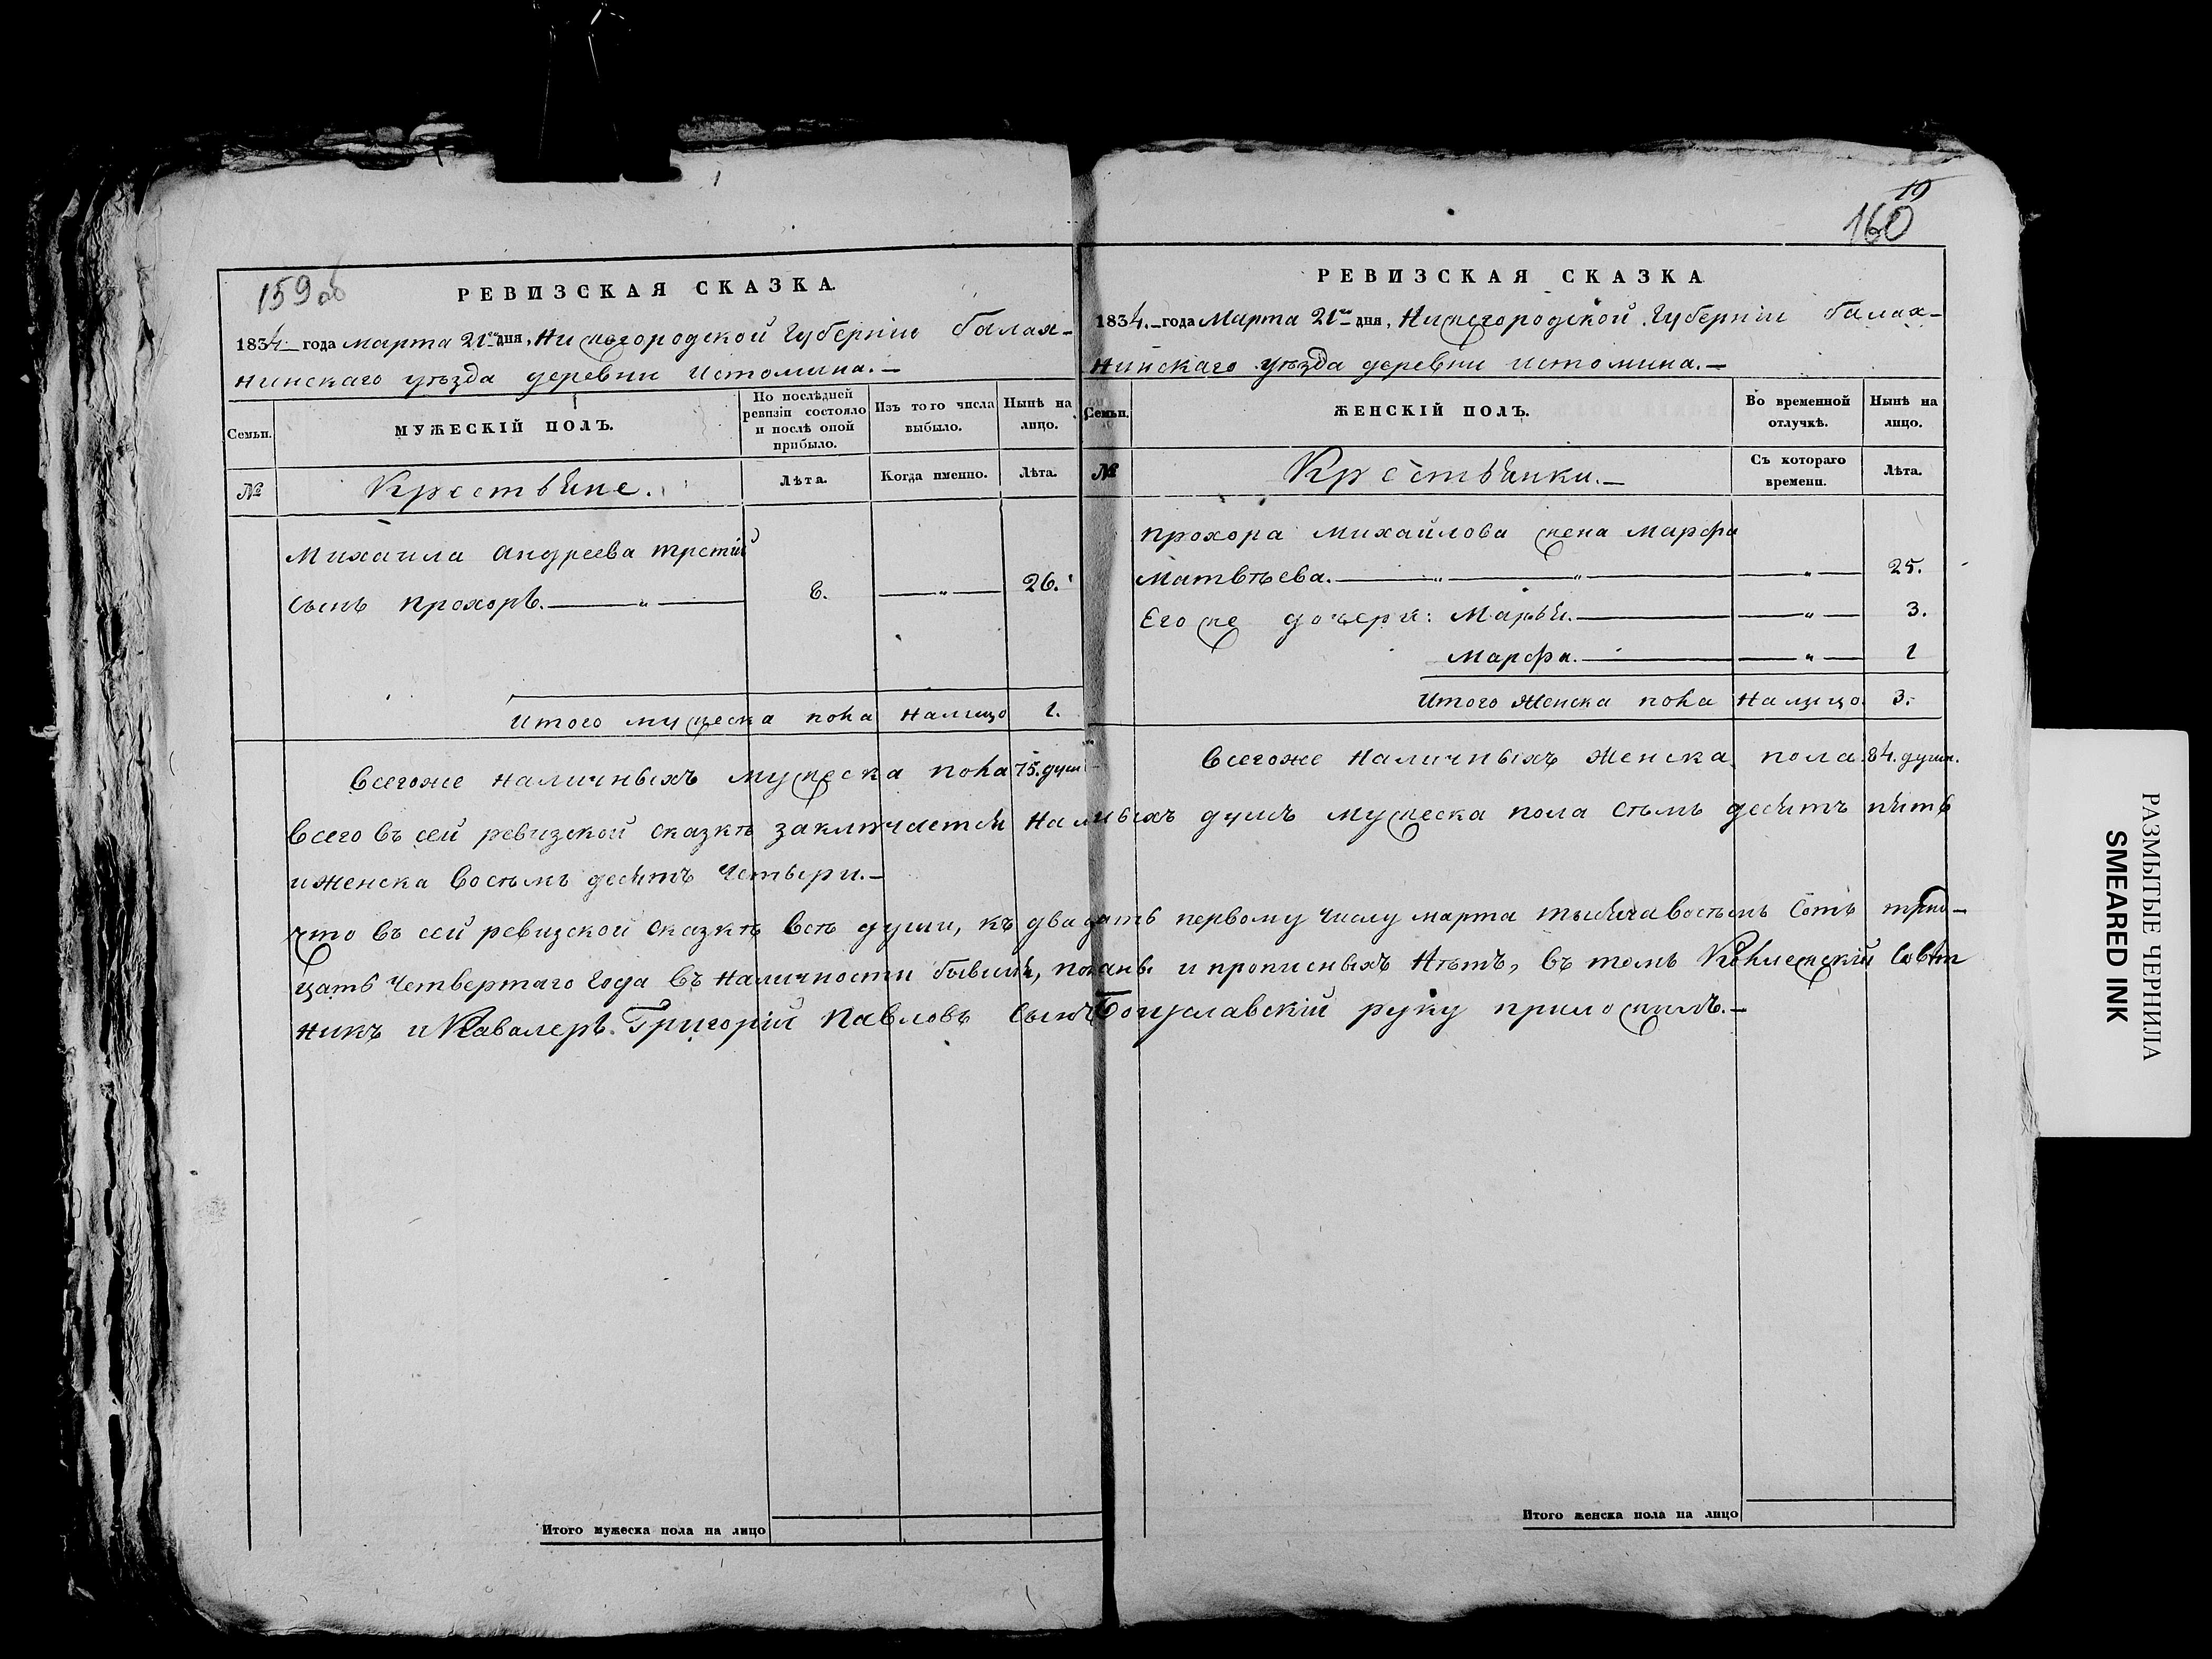 159 об
РЕВИЗСКАЯ СКАЗКА.
1834 года марта 21го дня, Нижегородской Губерніи Балах-
нинскаго уѣзда деревни Истомина.
Семьи.
МУЖЕСКІЙ ПОЛЪ.
По послѣдней ревизіи состояло и послѣ оной прибыло.
Изъ того числа выбыло.
Нынѣ на лицо.
№
Крестьяне.
Лѣта.
Когда именно.
Лѣта.
Михаила Андреева третій
сынъ Прохоръ. 8. 26.
Итого мужеска пола налицо 1.
Всегоже наличныхъ мужеска пола 75. душъ
19
160
РЕВИЗСКАЯ СКАЗКА
1834. года Марта 21го дня, Нижегородской Губерніи Балах-
нинскаго уѣзда деревни Истомина.
Семьи.
ЖЕНСКІЙ ПОЛЪ.
Во временной отлучкѣ.
Нынѣ на лицо.
№
Крестьянки.
Съ котораго времени.
Лѣта.
Прохора Михайлова жена Марфа
Матвѣева. 25.
Его же дочери: Марья. 3.
Марфа. 1
Итого Женска пола налицо 3.
Всегоже наличныхъ Женска пола 84. души.
Всего въ сей ревизской сказкѣ заключается душъ мужеска пола семь десятъ пять
и Женска восемь десятъ четыри.
что въ сей ревизской сказкѣ всѣ души, къ двадцать первому числу марта тысяча восемь сотъ трид-
цать четвертаго года въ наличности бывшія, показаны и прописныхъ нѣтъ, въ томъ Колежскій Совѣт
никъ и Кавалеръ Григорій Павловъ сынъ Богуславскій руку приложилъ.
Итого мужеска пола на лицо
Итого женска пола на лицо
РАЗМЫТЫЕ ЧЕРНИЛА
SMEARED INK